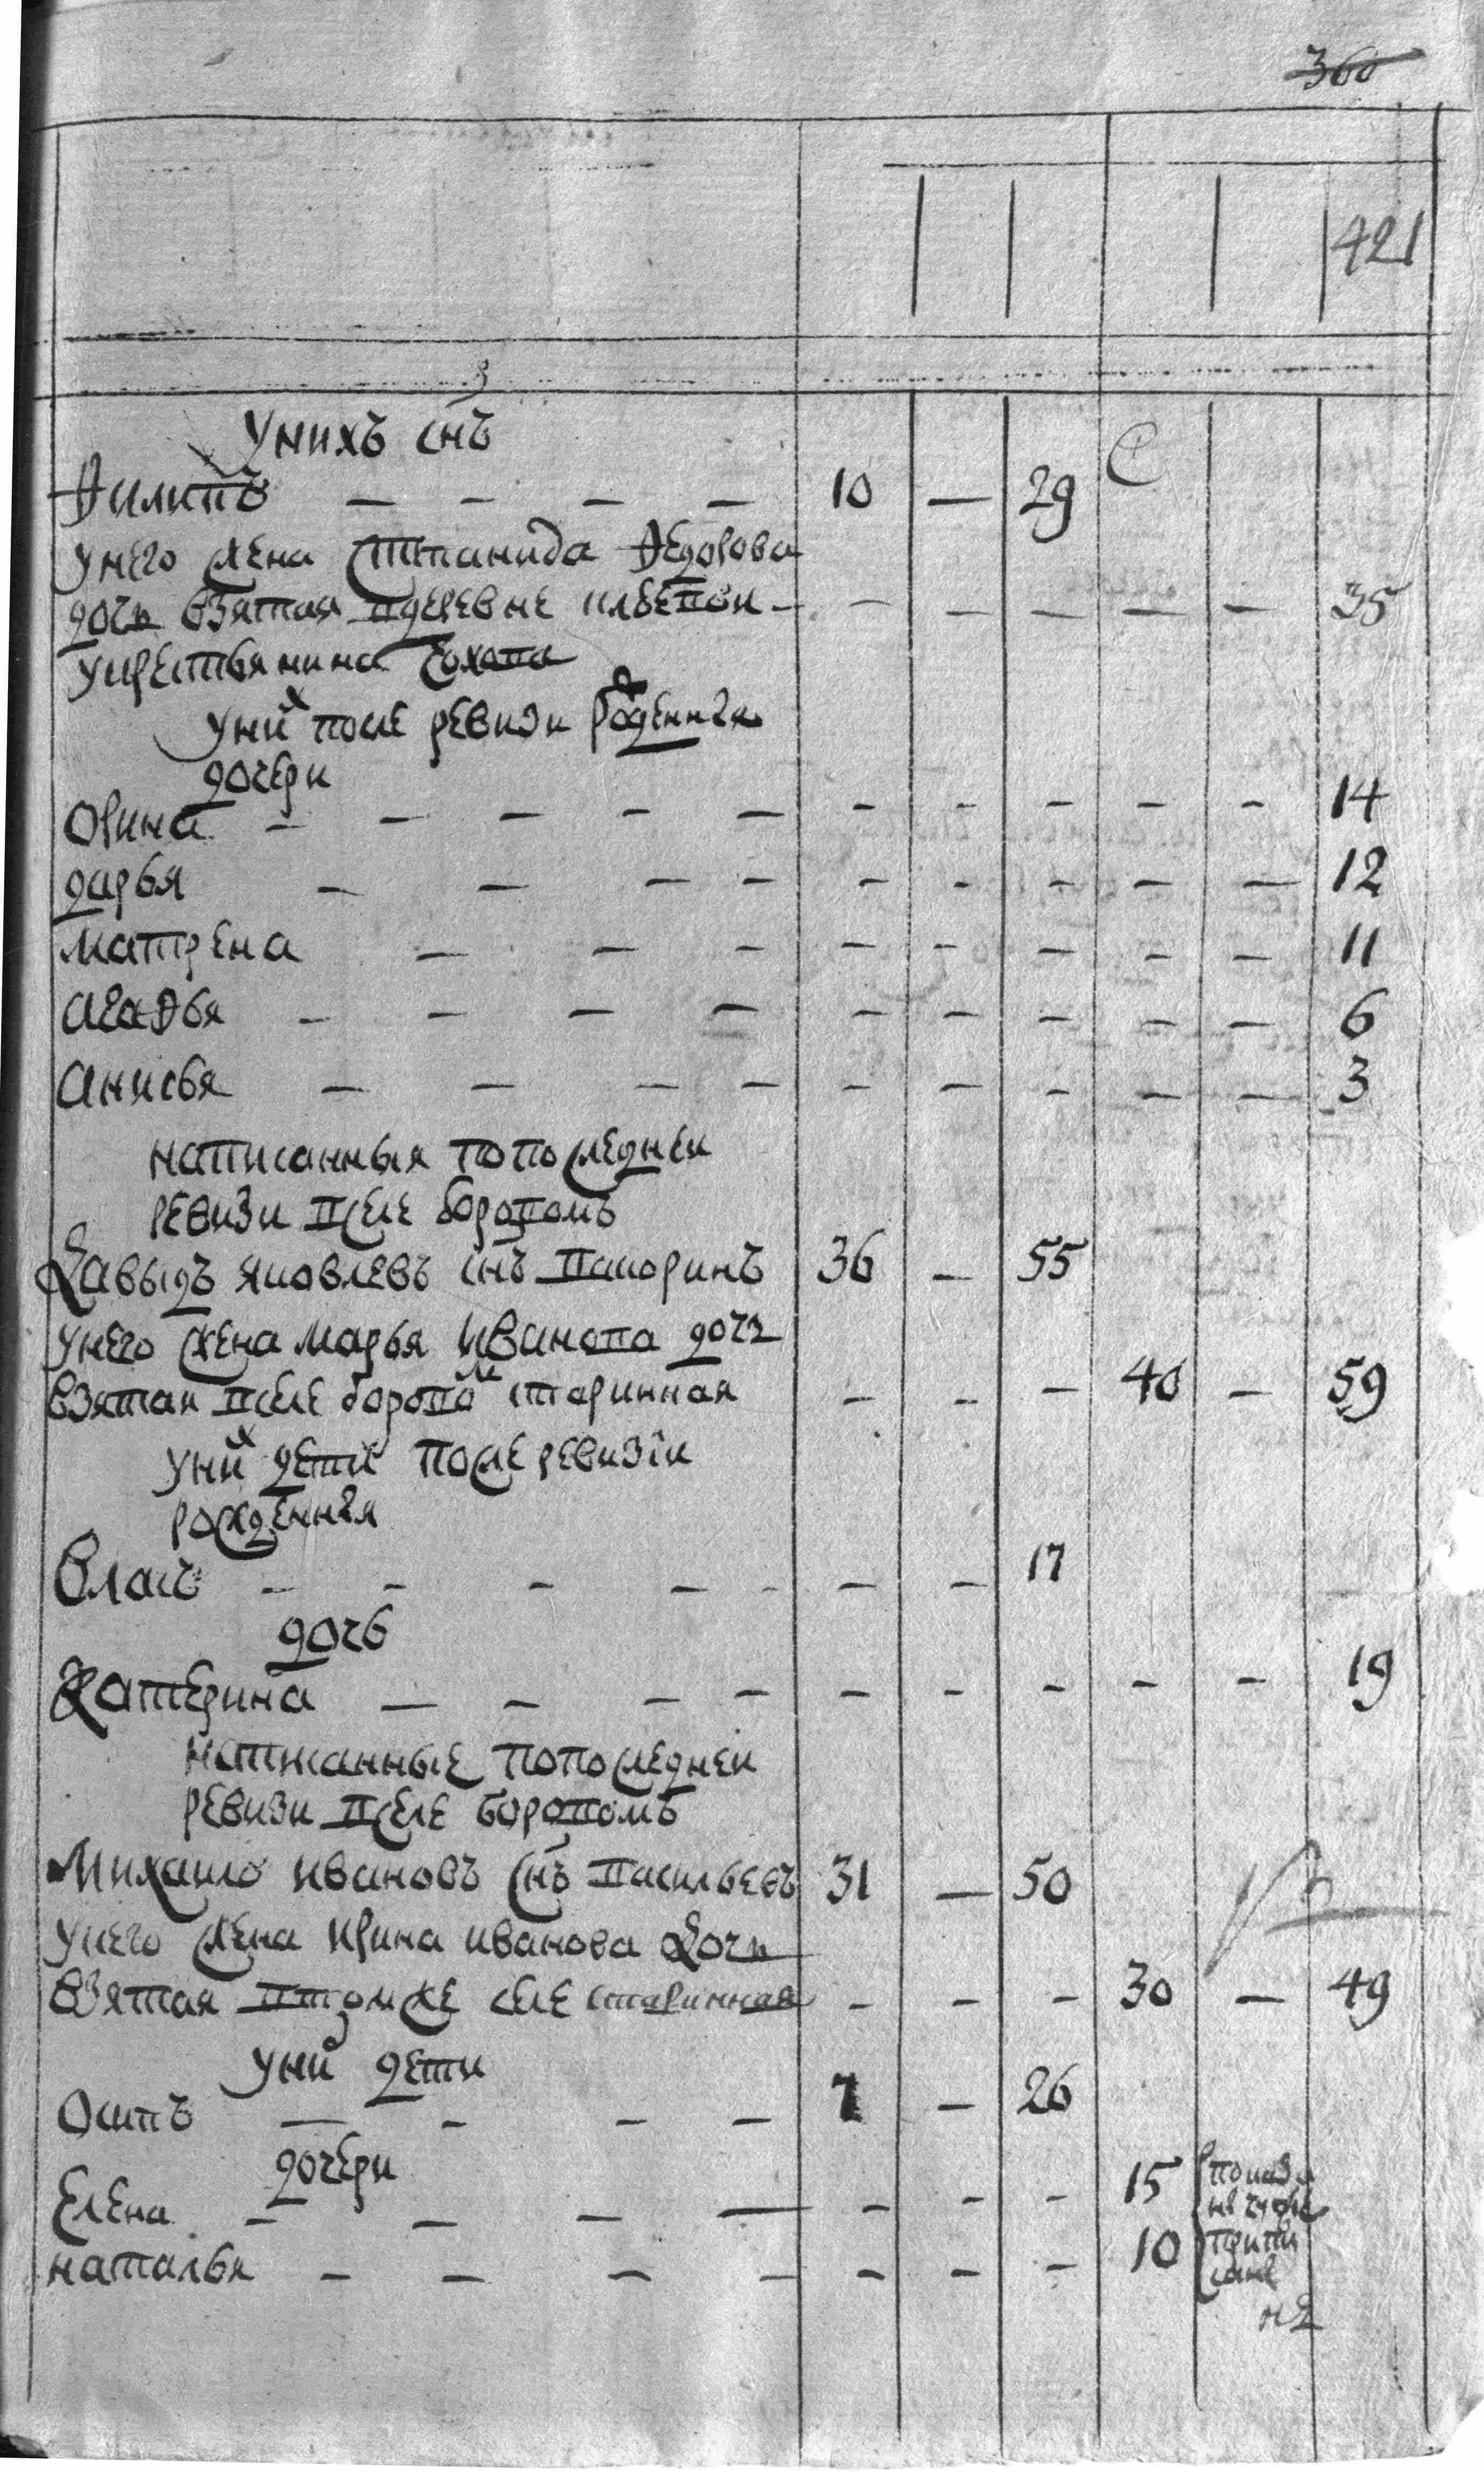 360
421
3
унихъ снъ
Филипъ — — — — 10 — 29 С
унего жена Степанида Федорова
дочь взятая вдеревне — — — — — 35
укрестьянина
униⷯ после ревизи рожденныя
дочери
Орина — — — — — — — — — — 14
дарья — — — — — — — — — 12
матрена — — — — — — — — 11
агафья — — — — — — — — — 6
анисья — — — — — — — — — 3
написанныя попоследнеи
ревизи вселе боровомъ
Давыдъ яковлевъ снъ 36 — 55
унего жена марья Иванова дочь
взятая вселе боровоⷨ старинная — — — 40 — 59
униⷯ дети после ревизiи
рожденныя
Власъ — — — — — — — 17
дочь
Катерина — — — — — — — — — 19
написанные попоследнеи
ревизи вселе боровомъ
Михаило ивановъ снъ васильевъ 31 — 50
унего жена Ирина иванова дочь
взятая втомже селе старинная — — — 30 — 49
униⷯ дети
Осипъ — — — — 7 — 26
дочери
Елена — — — — — — — 15
наталья — — — — — — — 10